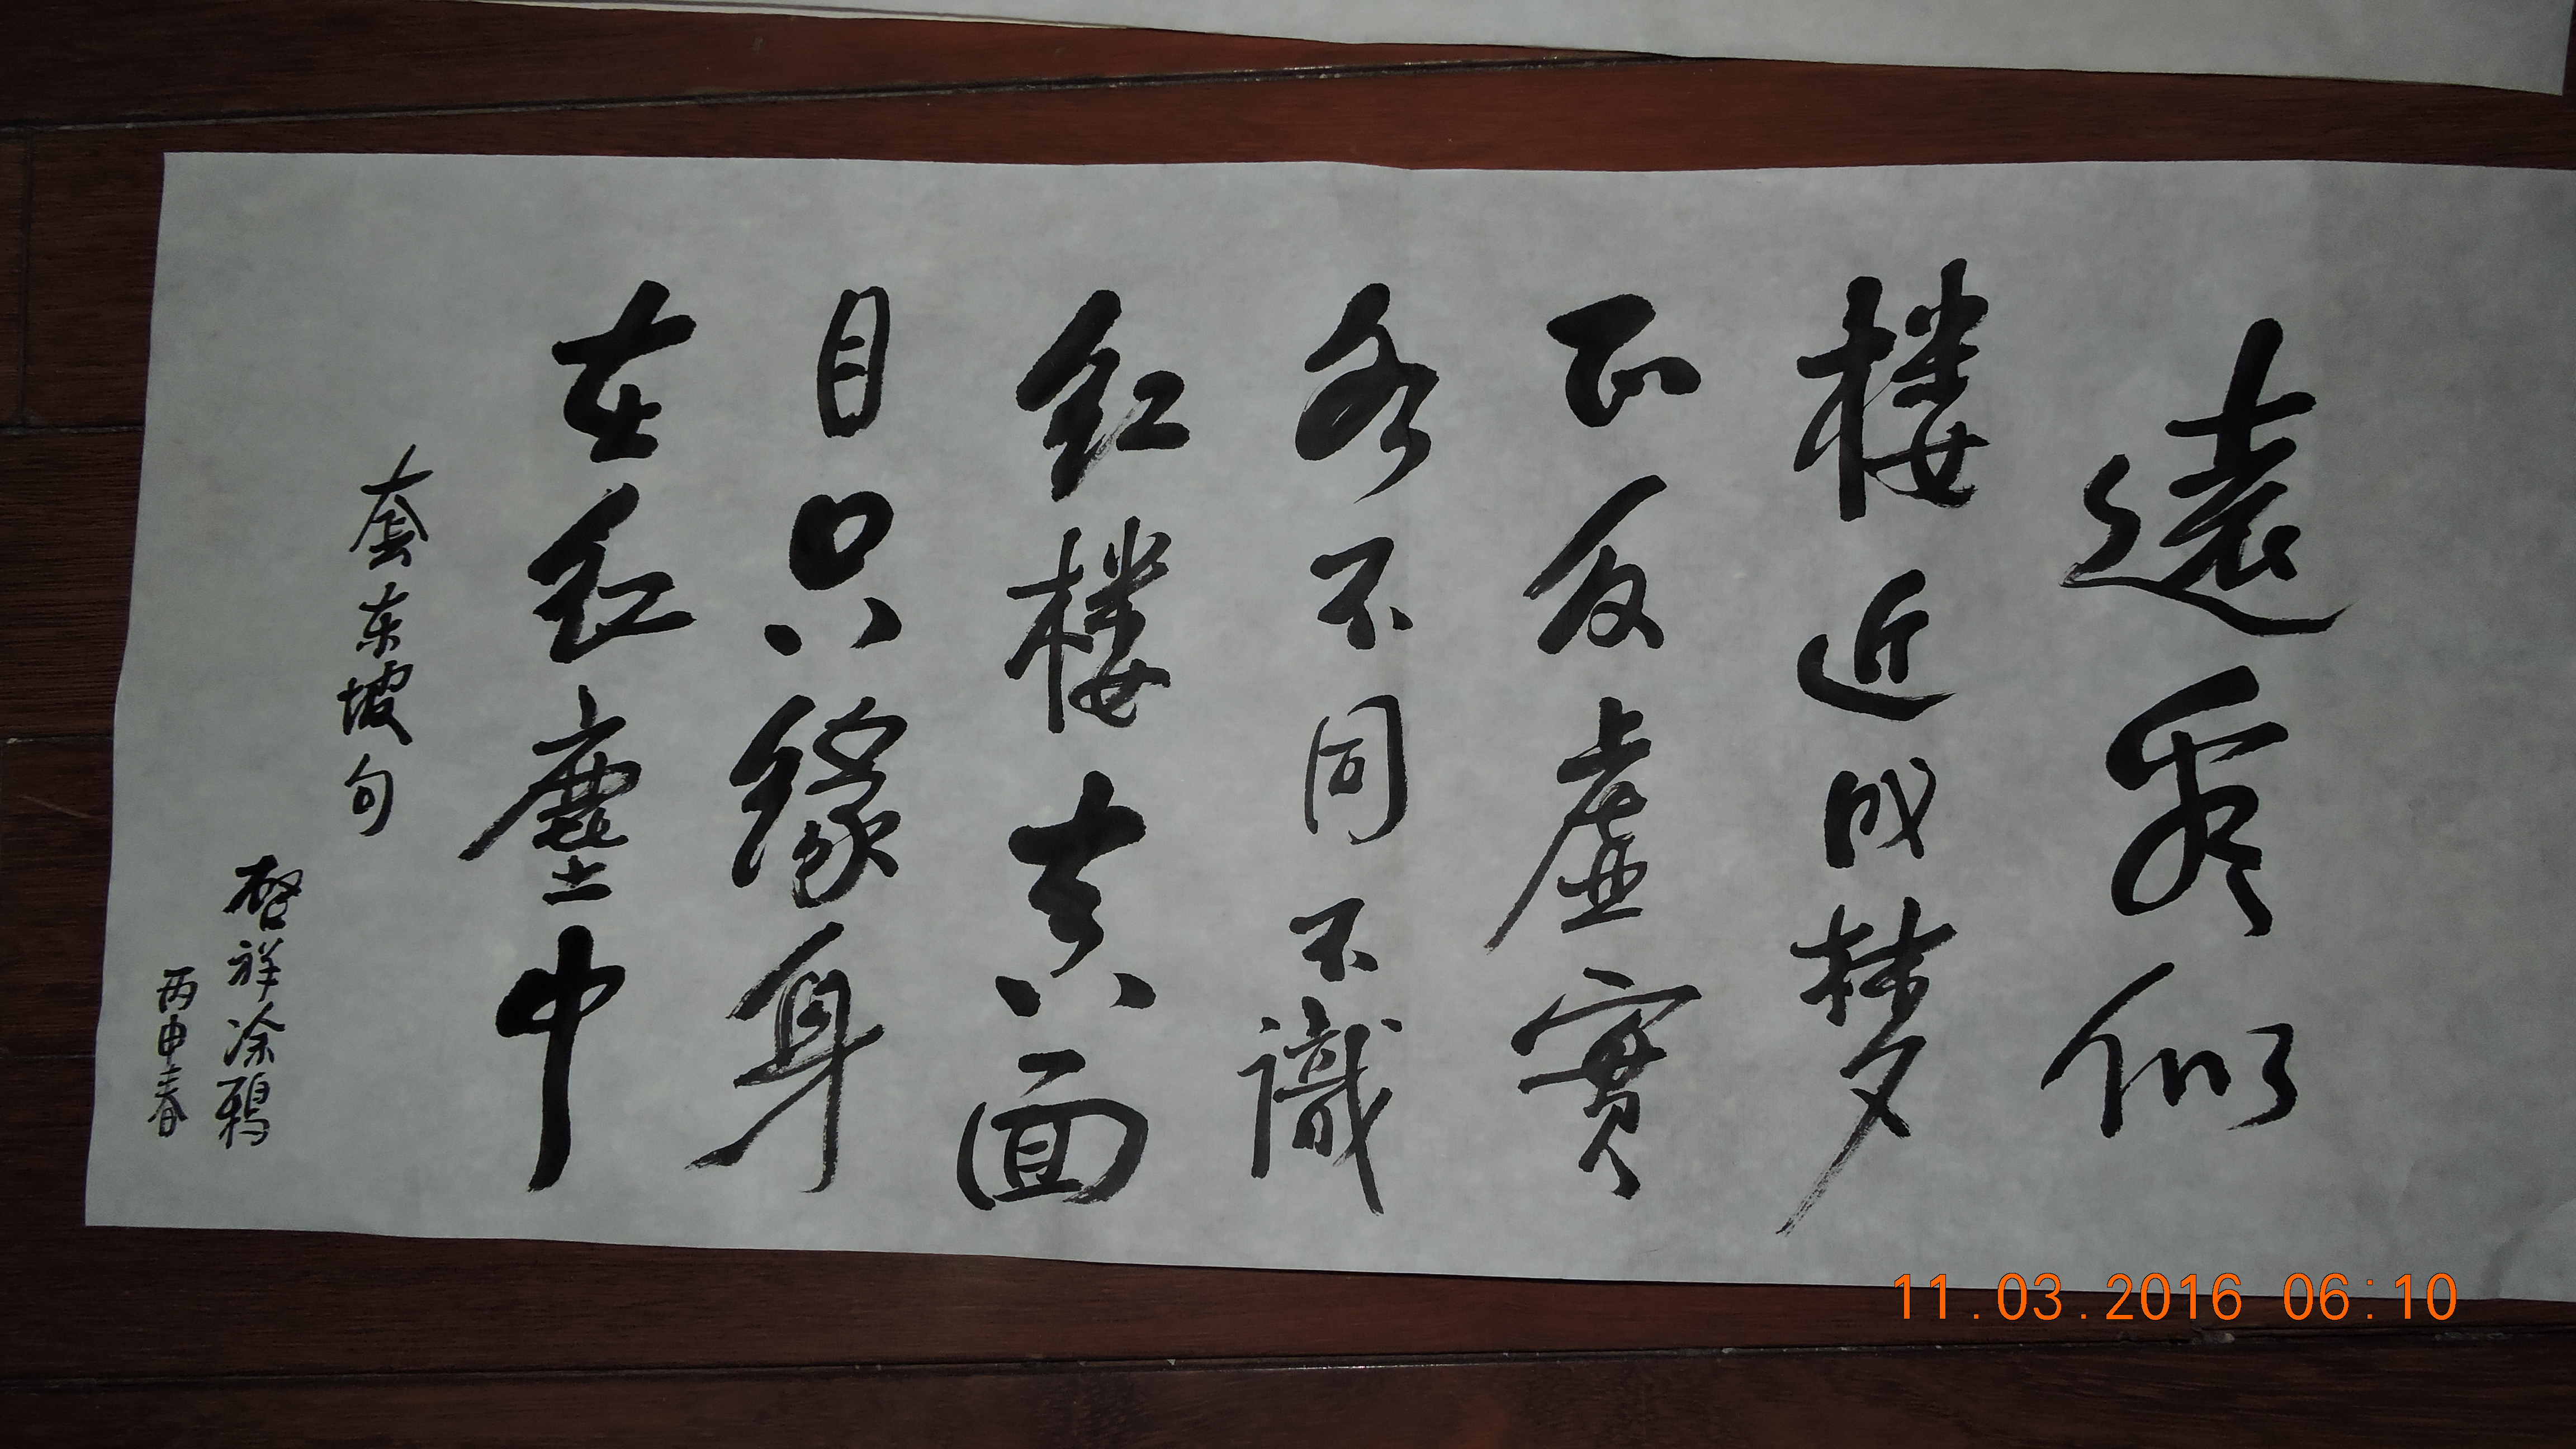 遠看似
楼近成梦
正反虚實
各不同不識
红楼真面
目只缘身
在红塵中
套东坡句
啓祥涂鸦
丙申春
11.03.2016 06:10